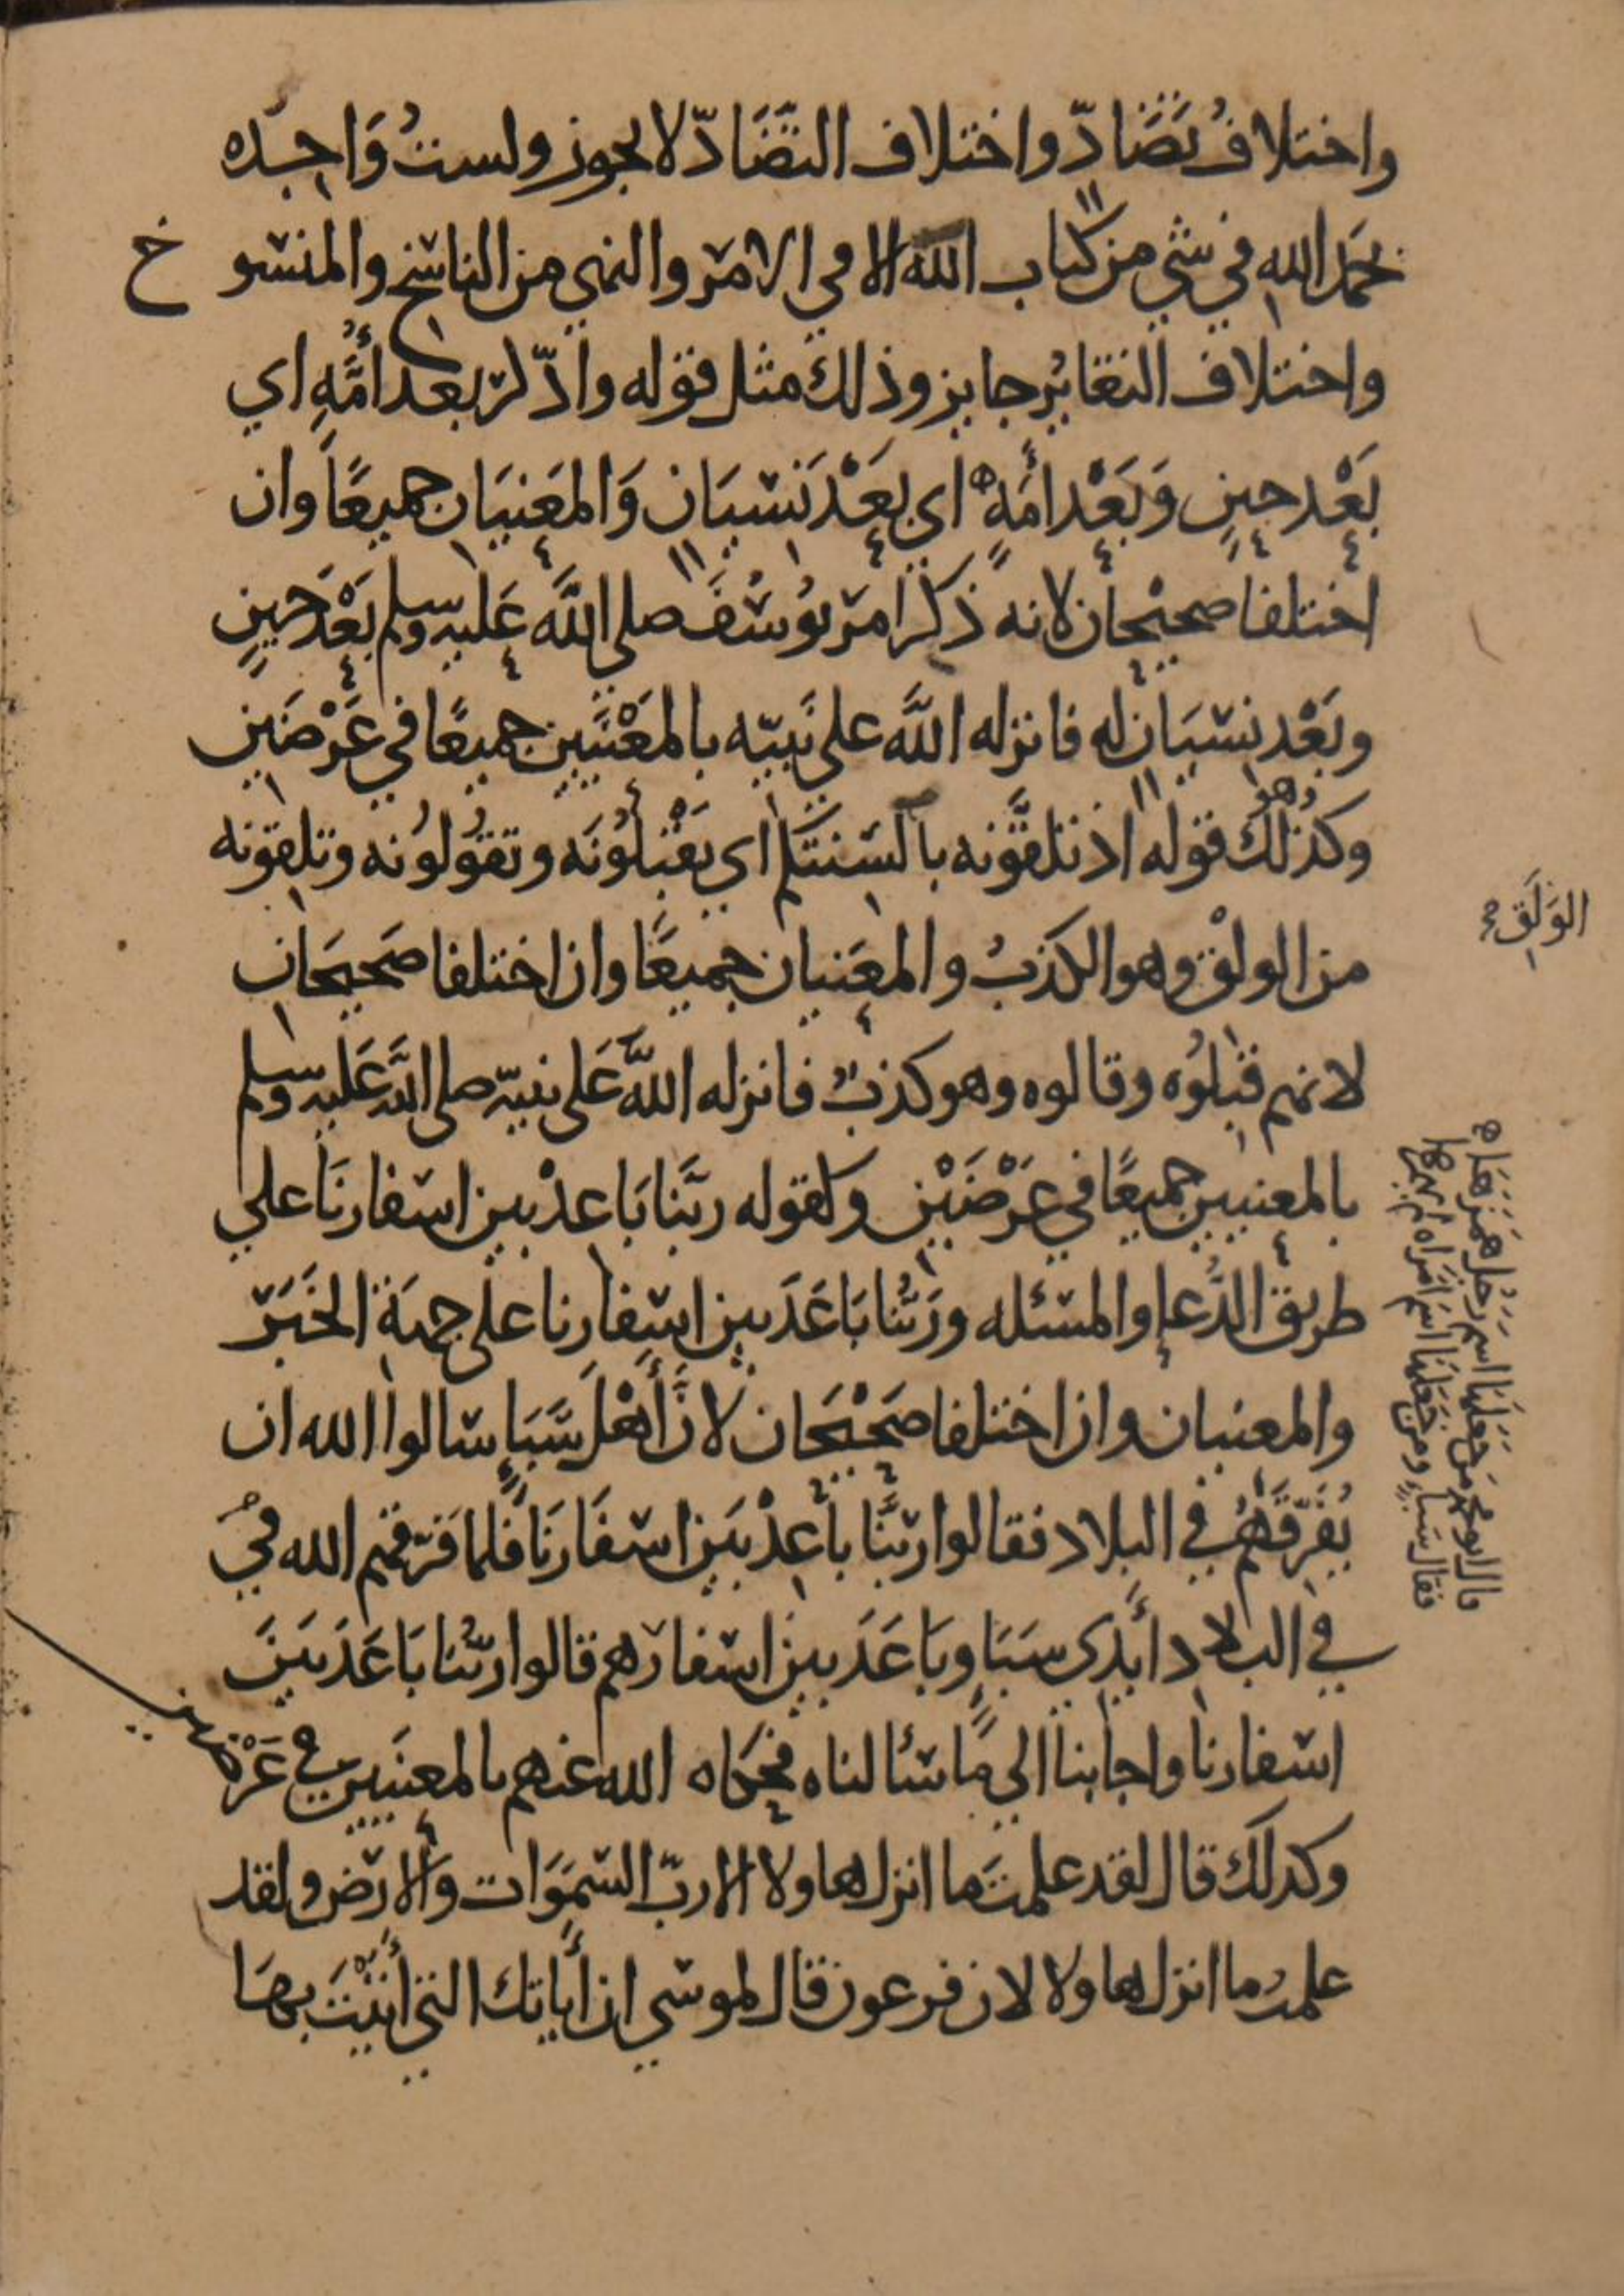 واختلافُ تَضَادّ واختلاف التَّضَادّ لا يجوز ولستُ وَاجِده
بحمَد الله في شي من كتاب الله الا في الامر والنهي من الناسخ والمنسوخ
واختلاف التغايُر جايز وذلك مثل قوله وادّكر بعد أُمَّةٍ اي
بَعْد حينٍ وَبَعْد أمَهٍ اي بعَدْ نسْيَان وَالمعَنيَان جميعًا وان
اختلفا صحيحان لانه ذكر امر يُوسُفَ صلى اللَّه عَليه وسلم بَعْدَ حينٍ
وبَعْد نسْيَان له فانزله اللَّه على نَبيّه بالمَعْنيَين جميعًا في عَرْضَين
وكذلك قوله اذ تلقَّونه بالسنتكم اي تَقْبلُونَه وتقُولُونه وتلِقونه
من الولْق وهو الكذبُ والمعَنيان جميعًا وان اختلفا صَحيحَان
لانهم قبلُوه وقالوه وهو كذبٌ فانزله اللَّه عَلى نبيّه صلى الله عَليه وسلم
بالمعنيين جميعًا في عَرْضَيْن وكقوله ربَّنا بَاعدْ بين اسفارنَا علي
طريق الدُّعاء والمسئله ورَبُّنا بَاعَدَ بين اسفارنا على جهَة الخَبَر
والمعنيان وان اختلفا صَحيْحَان لانَّ أَهْلَ سَبَاٍ سالوا الله ان
يُفَرّقَهُم في البلاد فقالوا ربَّنا باعِدْ بَين اسفَارنَا فلما فرّقهم الله في
في البلاد أيَدي سَبَاٍ وبَاعَدَ بين اسفارَهم قالوا ربُّنا بَاعَدَ بَينَ
اسفارنا واجابنا الي ما سئالناه فحَكاه الله عنهم بالمعنيَين في عَرْضين
وكذلك قال لقد علمتَ ما انزل هاولا الا ربّ السّموَات وَالارض ولقد
علمتُ ما انزل هاولا لان فرعون قال لموسي ان أياتك التي أتيْتَ بهَا
الوَلَق
قال ابو محمد من جَعلهَا اسم رَجُل هَمَز هَاه
فقال سَبَاءٍ ومن جَعَلهَا اسمَ امَراه لم يجرها